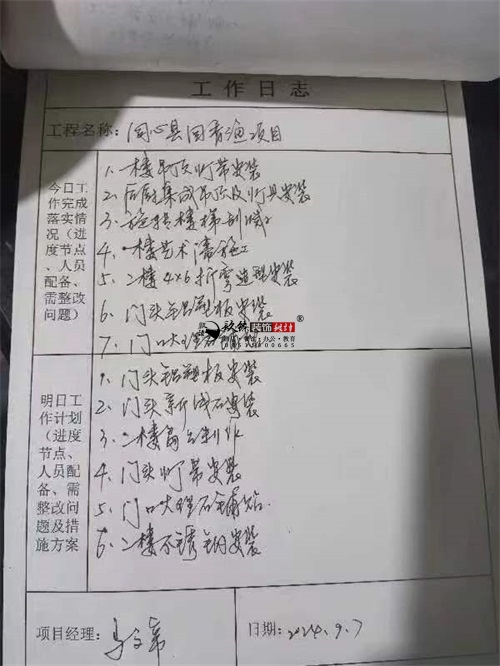 工作日志
工程名称: 同心县回香渔项目
今日工作完成落实情况(进度节点、人员配备、需整改问题)
1、一楼吊顶灯带安装
2、后厨集成吊顶及灯具安装
3、
4、一楼艺术漆施工
5、二楼4×6折弯造型安装
6、门头铝塑板安装
7、门口大理石
装饰设计®
明日工作计划(进度节点、人员配备、需整改问题及措施方案
1、门头铝塑板安装
2、门头新城石安装
3、二楼
4、门头灯带安装
5、门口大理石铺贴
6、二楼不锈钢安装
项目经理:
日期: 2024.9.7